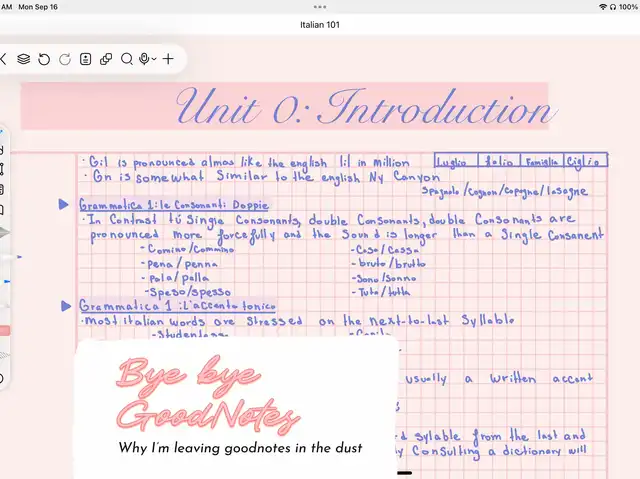 AM Mon Sep 16
100%
Italian 101
Unit 0: Introduction
· Gil is pronounced almos like the english lil in Million
Luglio foglio Famiglia Ciglio
· Gn is somewhat Similar to the english Ny Canyon
Spagnolo/Cognom/Copygne/lasagne
Grammatica 1: le Consonanti Doppie
· In Contrast tú Single Consonants, double Consonants, double Consonants are
pronounced more forcefully and the Sound is longer than a Single Consonant
- Camino/Cammino
- Casa/Cassa
- pena/penna
- bruto/brutto
- Pala/palla
- Sono/Sonno
- Speso/spesso
- Tuta/tutta
Grammatica 1: L'accento tonico
· Most italian words are stressed on the next-to-last Syllable
- Studentessa
usually a written accent
sylable from the last and
Consulting a dictionary will
Bye bye
GoodNotes
Why I'm leaving goodnotes in the dust